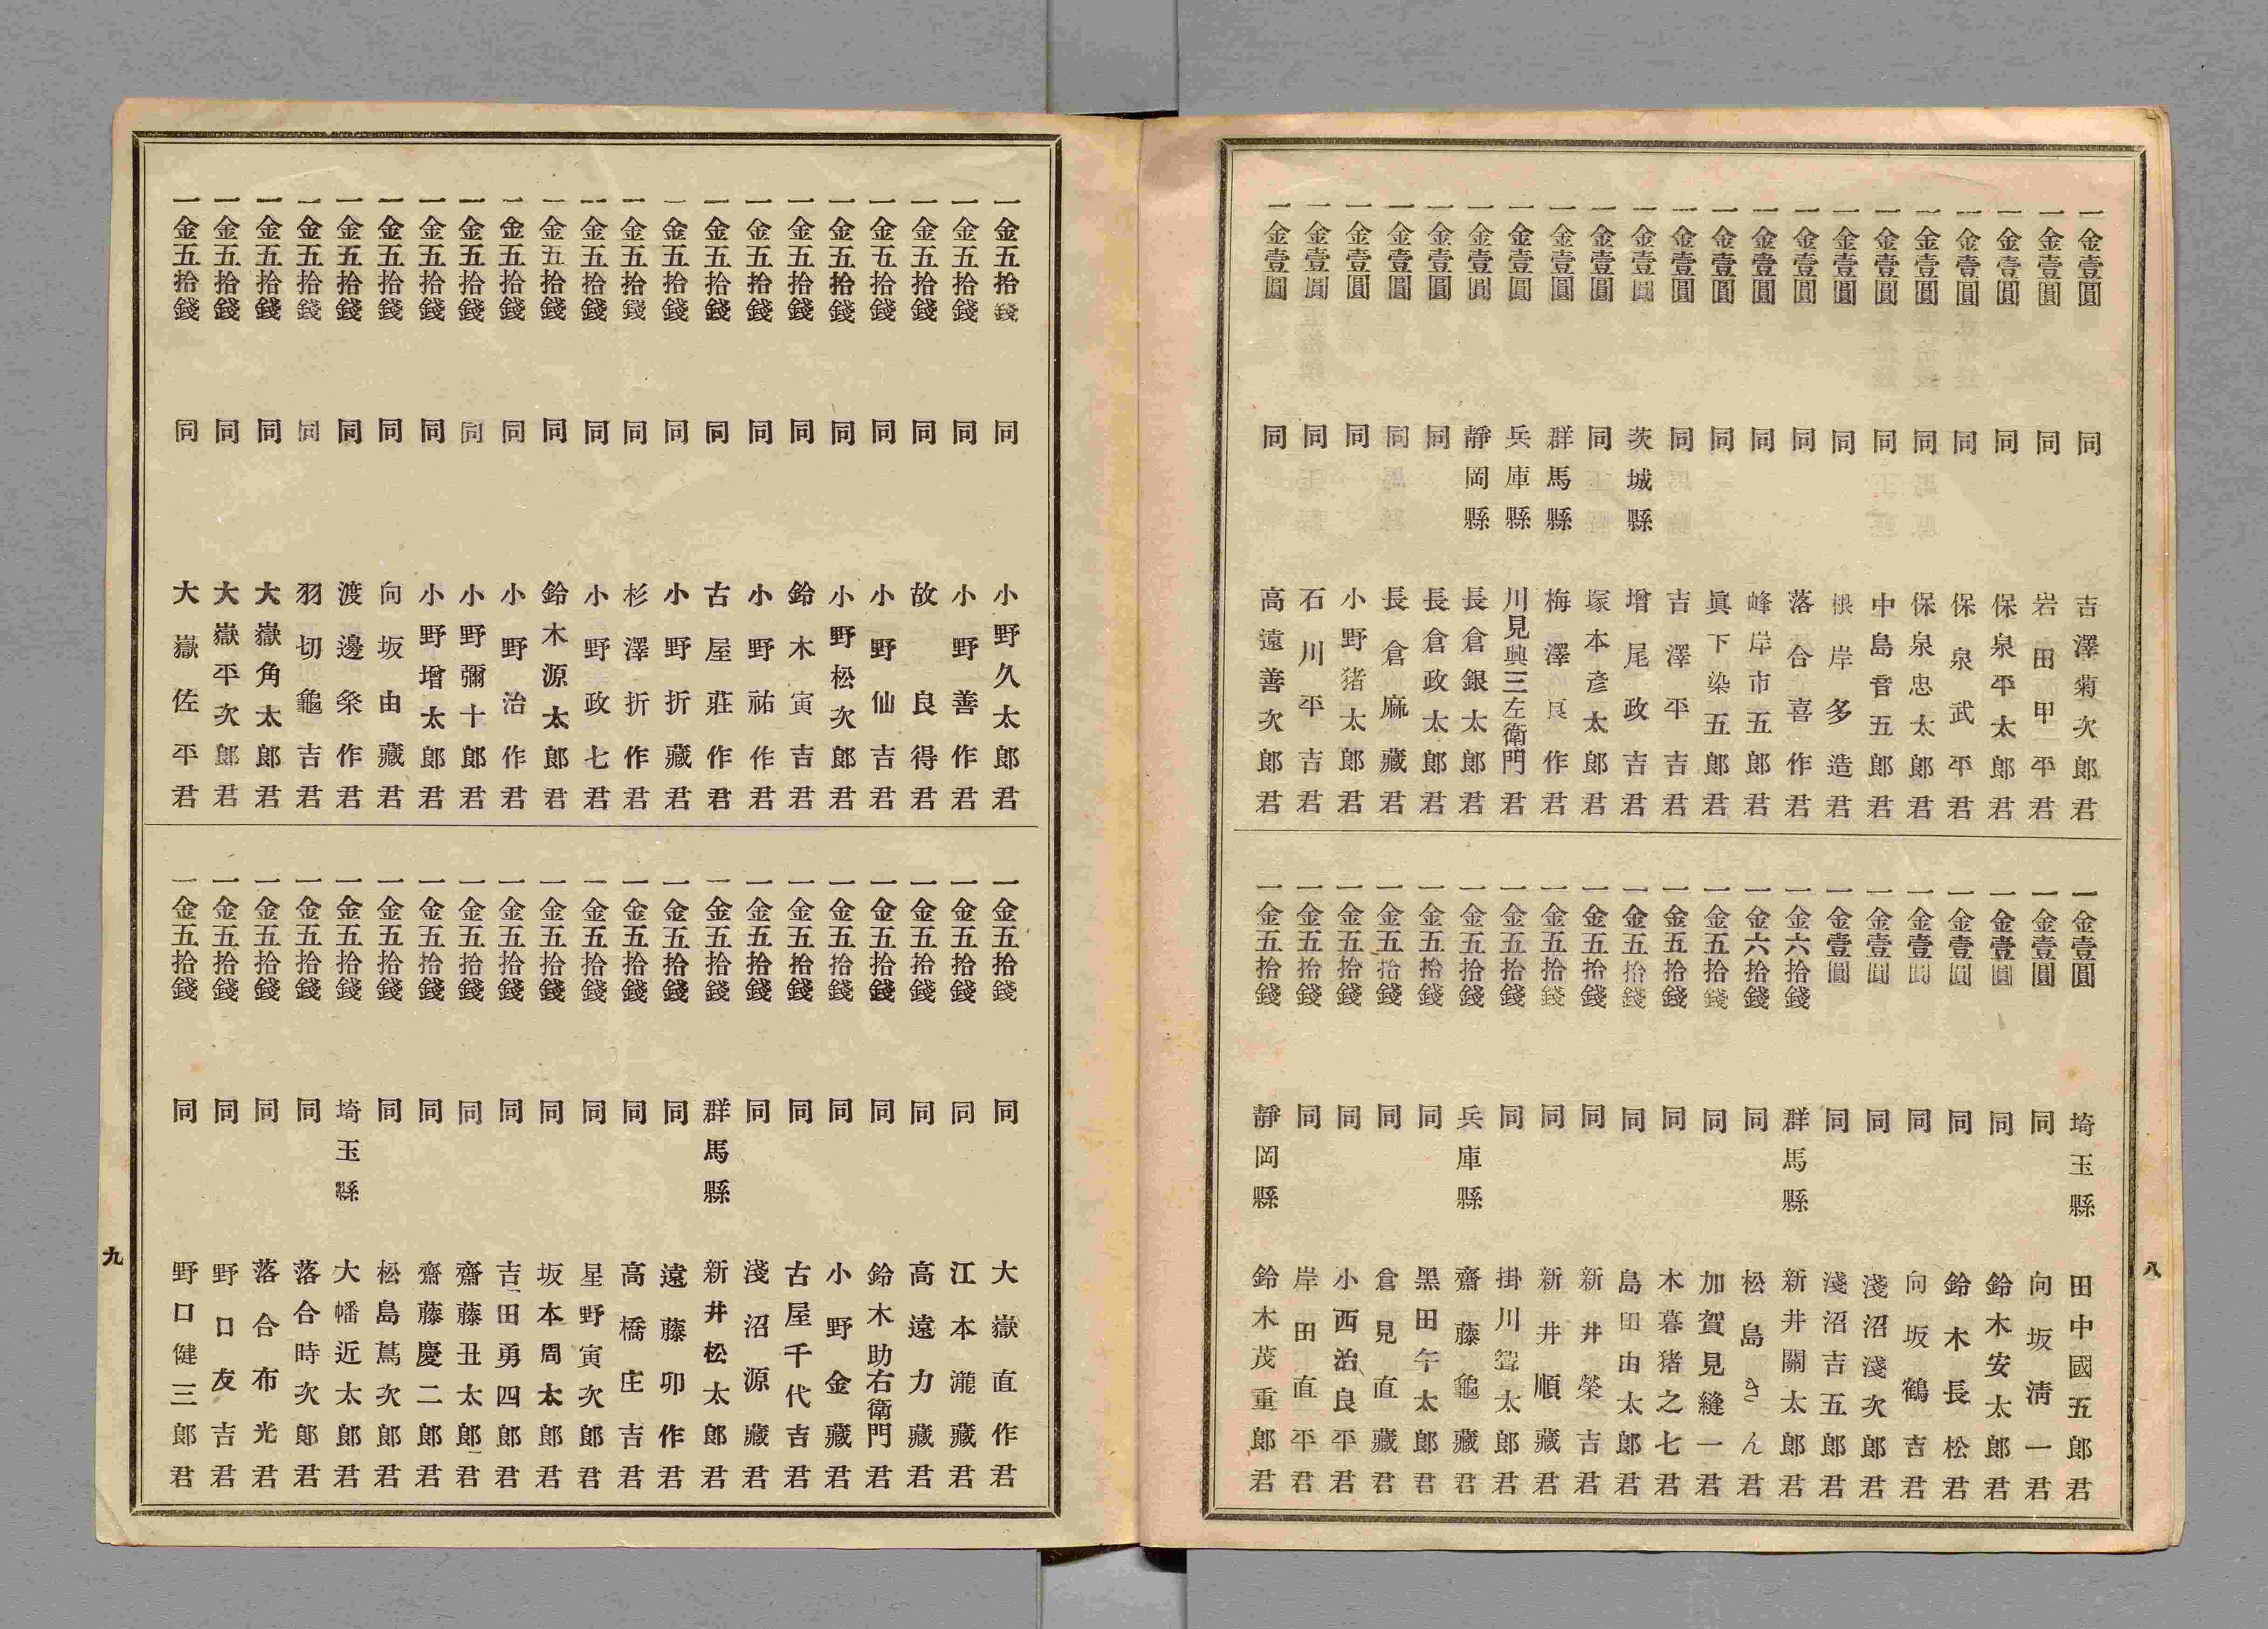 一金壹圓 同 吉澤菊次郎君
一金壹圓 同 岩田甲平君
一金壹圓 同 保泉平太郎君
一金壹圓 同 保泉武平君
一金壹圓 同 保泉忠太郎君
一金壹圓 同 中島音五郎君
一金壹圓 同 根岸多造君
一金壹圓 同 落合喜作君
一金壹圓 同 峰岸市五郎君
一金壹圓 同 眞下染五郎君
一金壹圓 同 吉澤平吉君
一金壹圓 茨城縣 增尾政吉君
一金壹圓 同 塚本彥太郎君
一金壹圓 群馬縣 梅澤良作君
一金壹圓 兵庫縣 川見興三左衛門君
一金壹圓 靜岡縣 長倉銀太郎君
一金壹圓 同 長倉政太郎君
一金壹圓 同 長倉麻藏君
一金壹圓 同 小野猪太郎君
一金壹圓 同 石川平吉君
一金壹圓 同 高遠善次郎君
一金壹圓 埼玉縣 田中國五郎君
一金壹圓 同 向坂淸一君
一金壹圓 同 鈴木安太郎君
一金壹圓 同 鈴木長松君
一金壹圓 同 向坂鶴吉君
一金壹圓 同 淺沼淺次郎君
一金壹圓 同 淺沼吉五郎君
一金六拾錢 群馬縣 新井關太郎君
一金六拾錢 同 松島きん君
一金五拾錢 同 加賀見縫一君
一金五拾錢 同 木暮猪之七君
一金五拾錢 同 島田由太郎君
一金五拾錢 同 新井榮吉君
一金五拾錢 同 新井順藏君
一金五拾錢 同 掛川聟太郎君
一金五拾錢 兵庫縣 齋藤龜藏君
一金五拾錢 同 黑田午太郎君
一金五拾錢 同 倉見直藏君
一金五拾錢 同 小西治良平君
一金五拾錢 同 岸田直平君
一金五拾錢 靜岡縣 鈴木茂重郎君
八
一金五拾錢 同 小野久太郎君
一金五拾錢 同 小野善作君
一金五拾錢 同 故良得君
一金五拾錢 同 小野仙吉君
一金五拾錢 同 小野松次郎君
一金五拾錢 同 鈴木寅吉君
一金五拾錢 同 小野祐作君
一金五拾錢 同 古屋莊作君
一金五拾錢 同 小野折藏君
一金五拾錢 同 杉澤折作君
一金五拾錢 同 小野政七君
一金五拾錢 同 鈴木源太郎君
一金五拾錢 同 小野治作君
一金五拾錢 同 小野彌十郎君
一金五拾錢 同 小野增太郎君
一金五拾錢 同 向坂由藏君
一金五拾錢 同 渡邊粂作君
一金五拾錢 同 羽切龜吉君
一金五拾錢 同 大嶽角太郎君
一金五拾錢 同 大嶽平次郎君
一金五拾錢 同 大嶽佐平君
一金五拾錢 同 大嶽直作君
一金五拾錢 同 江本瀧藏君
一金五拾錢 同 高遠力藏君
一金五拾錢 同 鈴木助右衛門君
一金五拾錢 同 小野金藏君
一金五拾錢 同 古屋千代吉君
一金五拾錢 同 淺沼源藏君
一金五拾錢 群馬縣 新井松太郎君
一金五拾錢 同 遠藤卯作君
一金五拾錢 同 高橋庄吉君
一金五拾錢 同 星野寅次郎君
一金五拾錢 同 坂本周太郎君
一金五拾錢 同 吉田勇四郎君
一金五拾錢 同 齋藤丑太郎君
一金五拾錢 同 齋藤慶二郎君
一金五拾錢 同 松島蔦次郎君
一金五拾錢 埼玉縣 大幡近太郎君
一金五拾錢 同 落合時次郎君
一金五拾錢 同 落合布光君
一金五拾錢 同 野口友吉君
一金五拾錢 同 野口健三郎君
九